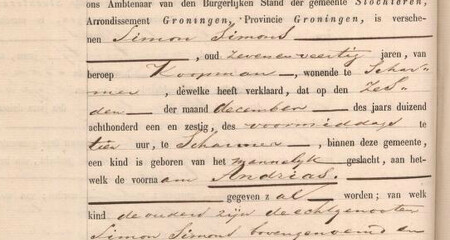 ons Ambtenaar van den Burgerlijken Stand der gemeente Slochteren,
Arrondissement Groningen, Provincie Groningen, is versche-
nen Simon Simons
, oud zevenenveertig jaren, van
beroep Koopman, wonende te Schar-
mer, dewelke heeft verklaard, dat op den zes-
den der maand december des jaars duizend
achthonderd een en zestig, des voormiddags te
tier uur, te Scharmer, binnen deze gemeente,
een kind is geboren van het mannelijk geslacht, aan het-
welk de voornaam Andries.
gegeven zal worden; van welk
kind de ouders zijn de echtgenooten
Simon Simons bovengenoemd en